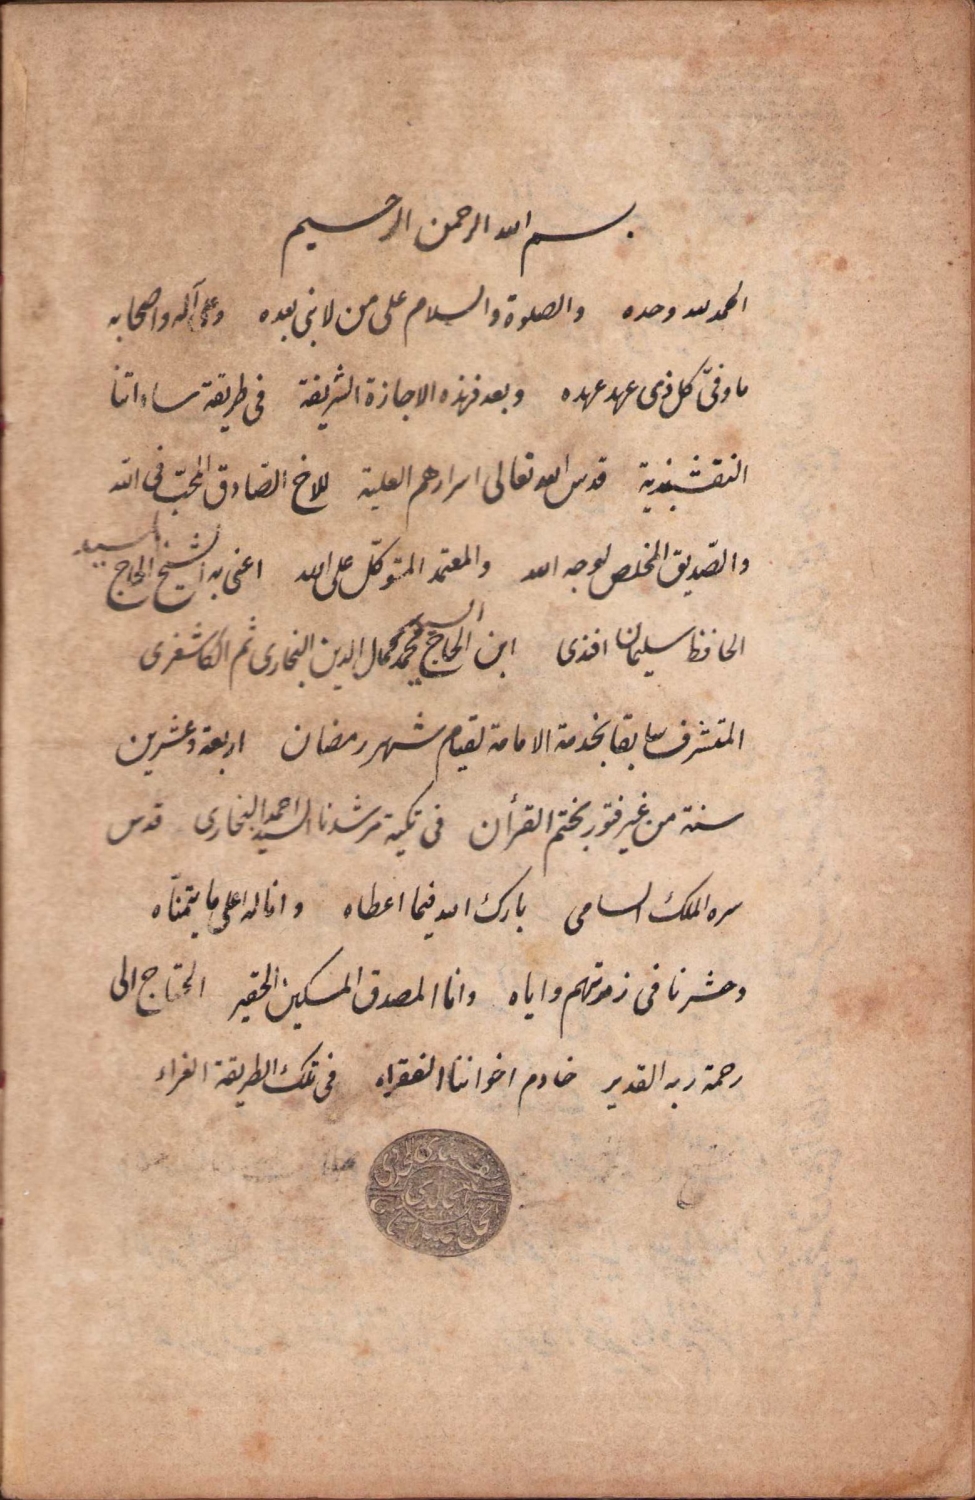 بسم الله الرحمن الرحيم
الحمد لله وحده والصلوة والسلام على من لا نبى بعده وعلى آله واصحابه
ما وفىّ كل ذى عهد عهده وبعد فهذه الاجازة الشريفة فى طريقة ساداتنا
النقشبندية قدس الله تعالى اسرارهم العلية للاخ الصّادق المحبّ فى الله
والصّديق المخلص لوجه الله والمعتمد المتوكّل على الله اعنى به الشيخ الحاج السيد
الحافظ سليمان افندى ابن الحاج السيد محمد كمال الدين البخارى ثم الكاشغرى
المتشرف سابقا بخدمة الامامة لقيام شهر رمضان اربعة وعشرين
سنة من غير فتور بختم القرأن فى تكية مرشدنا السيد احمد البخارى قدس
سره الملك السامى بارك الله فيما اعطاه واناله اعلى ما يتمنّاه
وحشرنا فى زمرتهم واياه وانا المصدق المسكين الحقير المحتاج الى
رحمة ربه القدير خادم اخواننا الفقراء فى تلك الطريقة الغراء